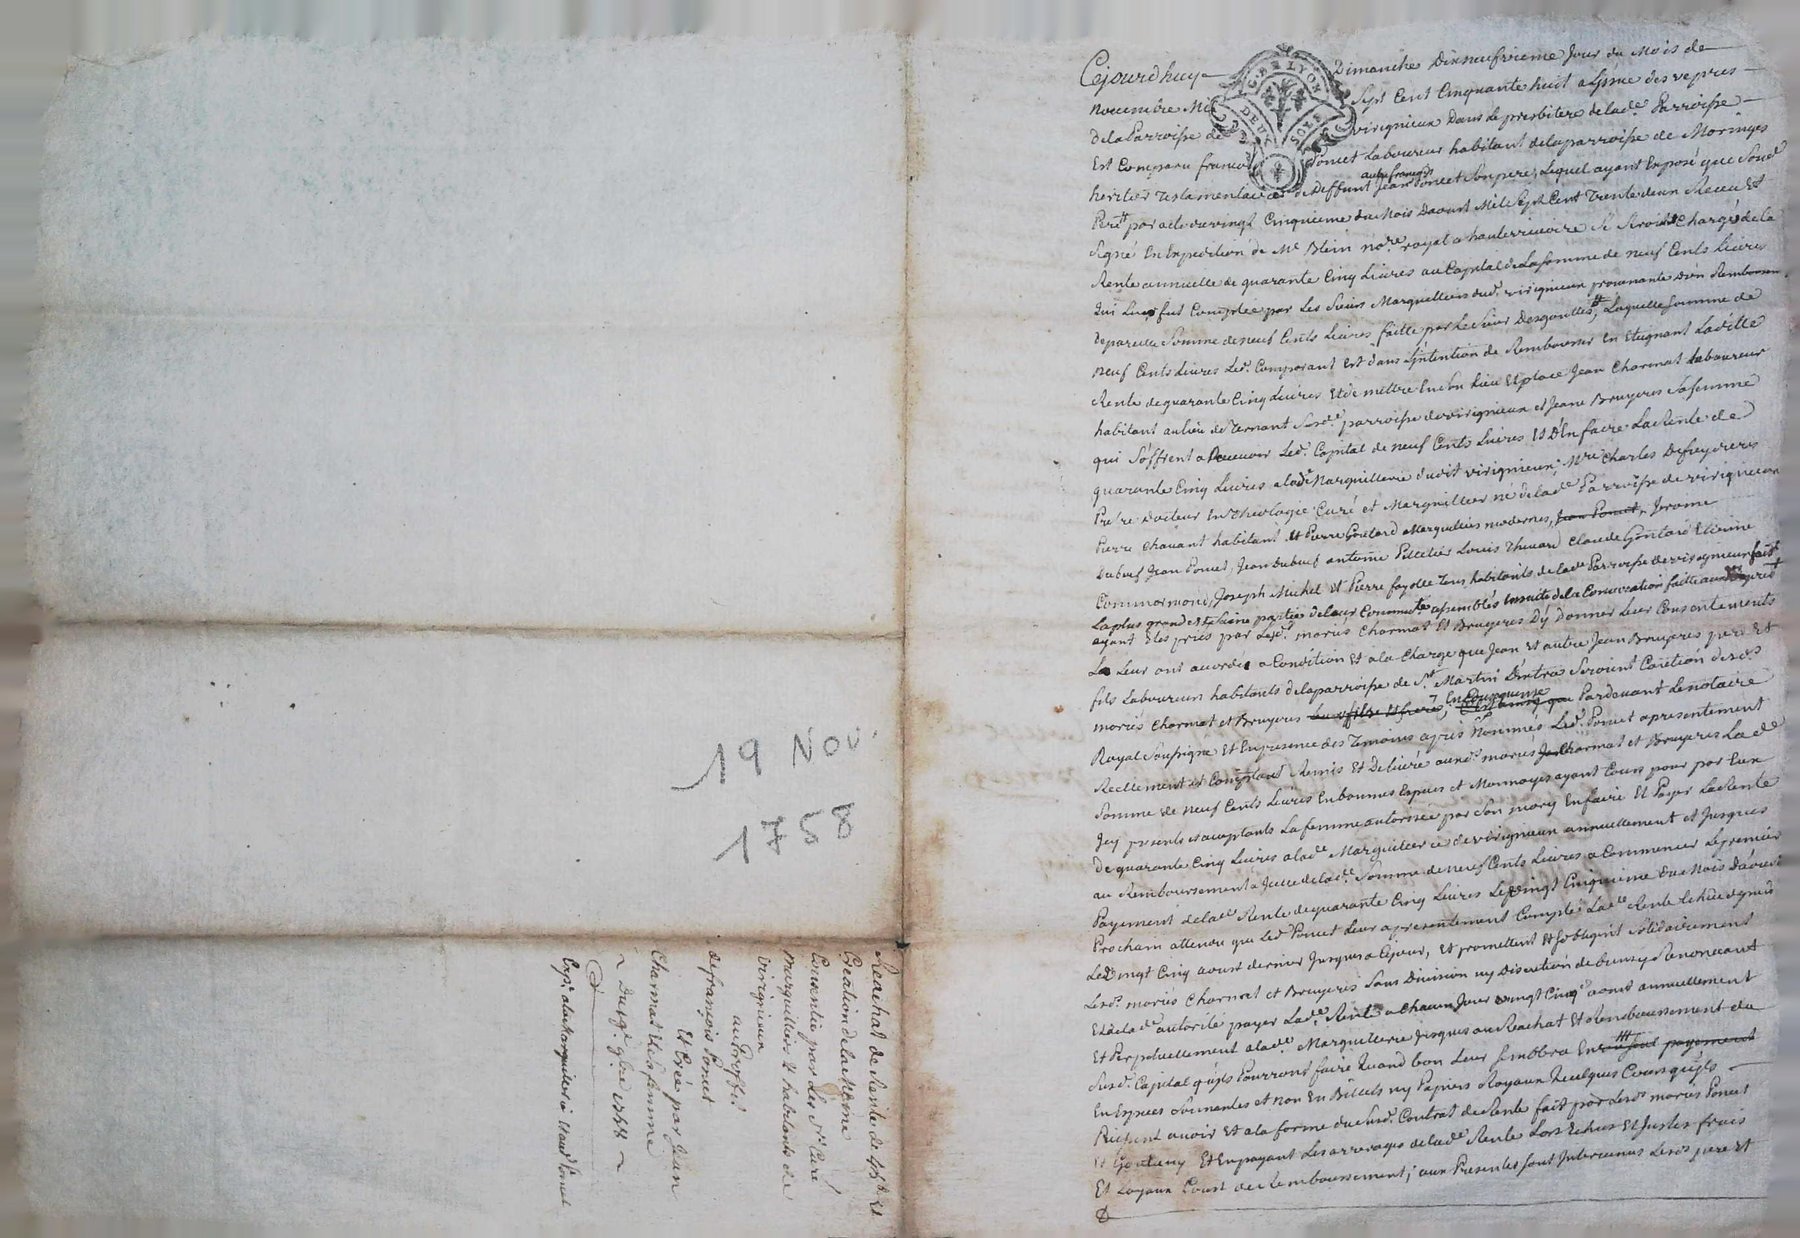 19 NOV.
1758
Rachat de Rente de 45# Et
Création de la Meme
Consentie par les Sr Curé
Marguilliers & habitants de
virignieux
au Proffit
de françois Poncet
Et Créé par Jean
Charmat & sa femme
~ Du 19e 9bre 1758 ~
Exp. a la Marguillerie & aud. Poncet
G. DE LYON
DEUX SOLS
Cejourdhuy Dimanche Dixneufvieme Jour du Mois de
Novembre Mil Sept Cent Cinquante huit a Lissue des vepres
de la Parroisse de virignieux Dans le presbitere de lad.e Parroisse
Est Comparu francois Poncet Laboureur habitant de la parroisse de Maringes
heritier Testamentaire de deffunt autre francois Poncet Son pere, Lequel ayant Exposé que Soud.
par acte du vingt Cinquieme du Mois Daoust Mil Sept Cent Trente deux Receu Et
Signé En Expedition de Me Blein no.re royal a hauterivoire Il Seroit Chargé de la
Rente annuelle de quarante Cinq Livres au Capital de La Somme de neuf Cents Livres
qui Luy fut Comptée par Les Sieurs Marguilliers dud. virignieux provenante D'un Rembours.
de pareille Somme de neuf Cents Livres faitte par Le Sieur Desgouttes, Laquelle Somme de
neuf Cents Livres Led. Comparant Est dans L'intention de Rembourser En Eteignant Laditte
Rente de quarante Cinq Livres Et de mettre En Son Lieu Et place Jean Charmat Laboureur
habitant au lieu de Ternant Sus.de parroisse de virignieux et Jeane Bruyeres Sa femme
qui S'offrent a Recevoir Led. Capital de neuf Cents Livres, Et D'En faire La Rente de
quarante Cinq Livres a lad.e Marguillerie dudit virignieux; Mre Charles Defreydieres
Prêtre docteur En Theologie Curé et Marguillier né de lad.e Parroisse de virignieux
Pierre Chavant habitant Et Pierre Goutard Marguilliers modernes, Jean Poncet, Jerome
Dubeuf Jean Poncet, Jean Dubeuf antoine Pelletier Louis Thivard Claude Goutard Etienne
Commarmond, Joseph Michel Et Pierre fayolle Tous habitants de lad.e Parroisse de virignieux faisant
La plus grande Et Saine partie de leur Communté assemblés Ensuite de la Convocation faitte
ayant Etés priés par Lesd. mariés Charmat Et Bruyeres D'y Donner Leur Consentements
Le Leur ont accordé a Condition Et a la Charge que Jean Et autre Jean Bruyeres pere Et
fils Laboureurs habitants de la parroisse de St Martin Lestra Seroient Caution desd.
mariés Charmat et Bruyeres, En Consequence Pardevant Le notaire
Royal Soussigné Et En presence des Temoins apres Nommés Led. Poncet a presentement
Reellement Et Comptant Remis Et Delivré auxd. mariés Charmat et Bruyeres Lad.e
Somme de neuf Cents Livres En bonnes Especes et Monnoyes ayant Cours pour par Eux
Icy presents et acceptants La femme autorisée par Son mary En faire Et Payer La Rente
de quarante Cinq Livres a lad.e Marguillerie de virignieux annuellement et Jusques
au Remboursement a Icelle de lad.e Somme de neuf Cents Livres a Commencer Le premier
Payement de lad.e Rente de quarante Cinq Livres Le vingt Cinquieme Du Mois Daoust
Prochain attendu que Led. Poncet Leur a presentement Compté Lad.e Rente Echüe depuis
Le vingt Cinq aoust dernier Jusques a Cejour, Et promettent Et s'obligent Solidairement
Lesd. mariés Charmat et Bruyeres Sans Division ny Discution de biens y Renoncant
Et de lad.e autorité payer Lad.e Rente a Chacun Jour vingt Cinq aoust annuellement
Et Perpetuellement a lad.e Marguillerie Jusques au Rachat Et Remboursement du
Susd. Capital qu'ils Pourront faire Quand bon Leur Semblera En un Seul payement
En Especes Sonnantes et non En Billets ny Papiers Royaux Quelques Cours qu'ils
Puissent avoir Et a la forme du Susd. Contrat de Rente fait par Lesd. mariés Poncet
Et Goutany Et En payant Les arrerages de lad.e Rente Lors Echus Et Justes frais
Et Loyaux Couts de Remboursement; aux Presentes Sont Intervenus Lesd. pere Et